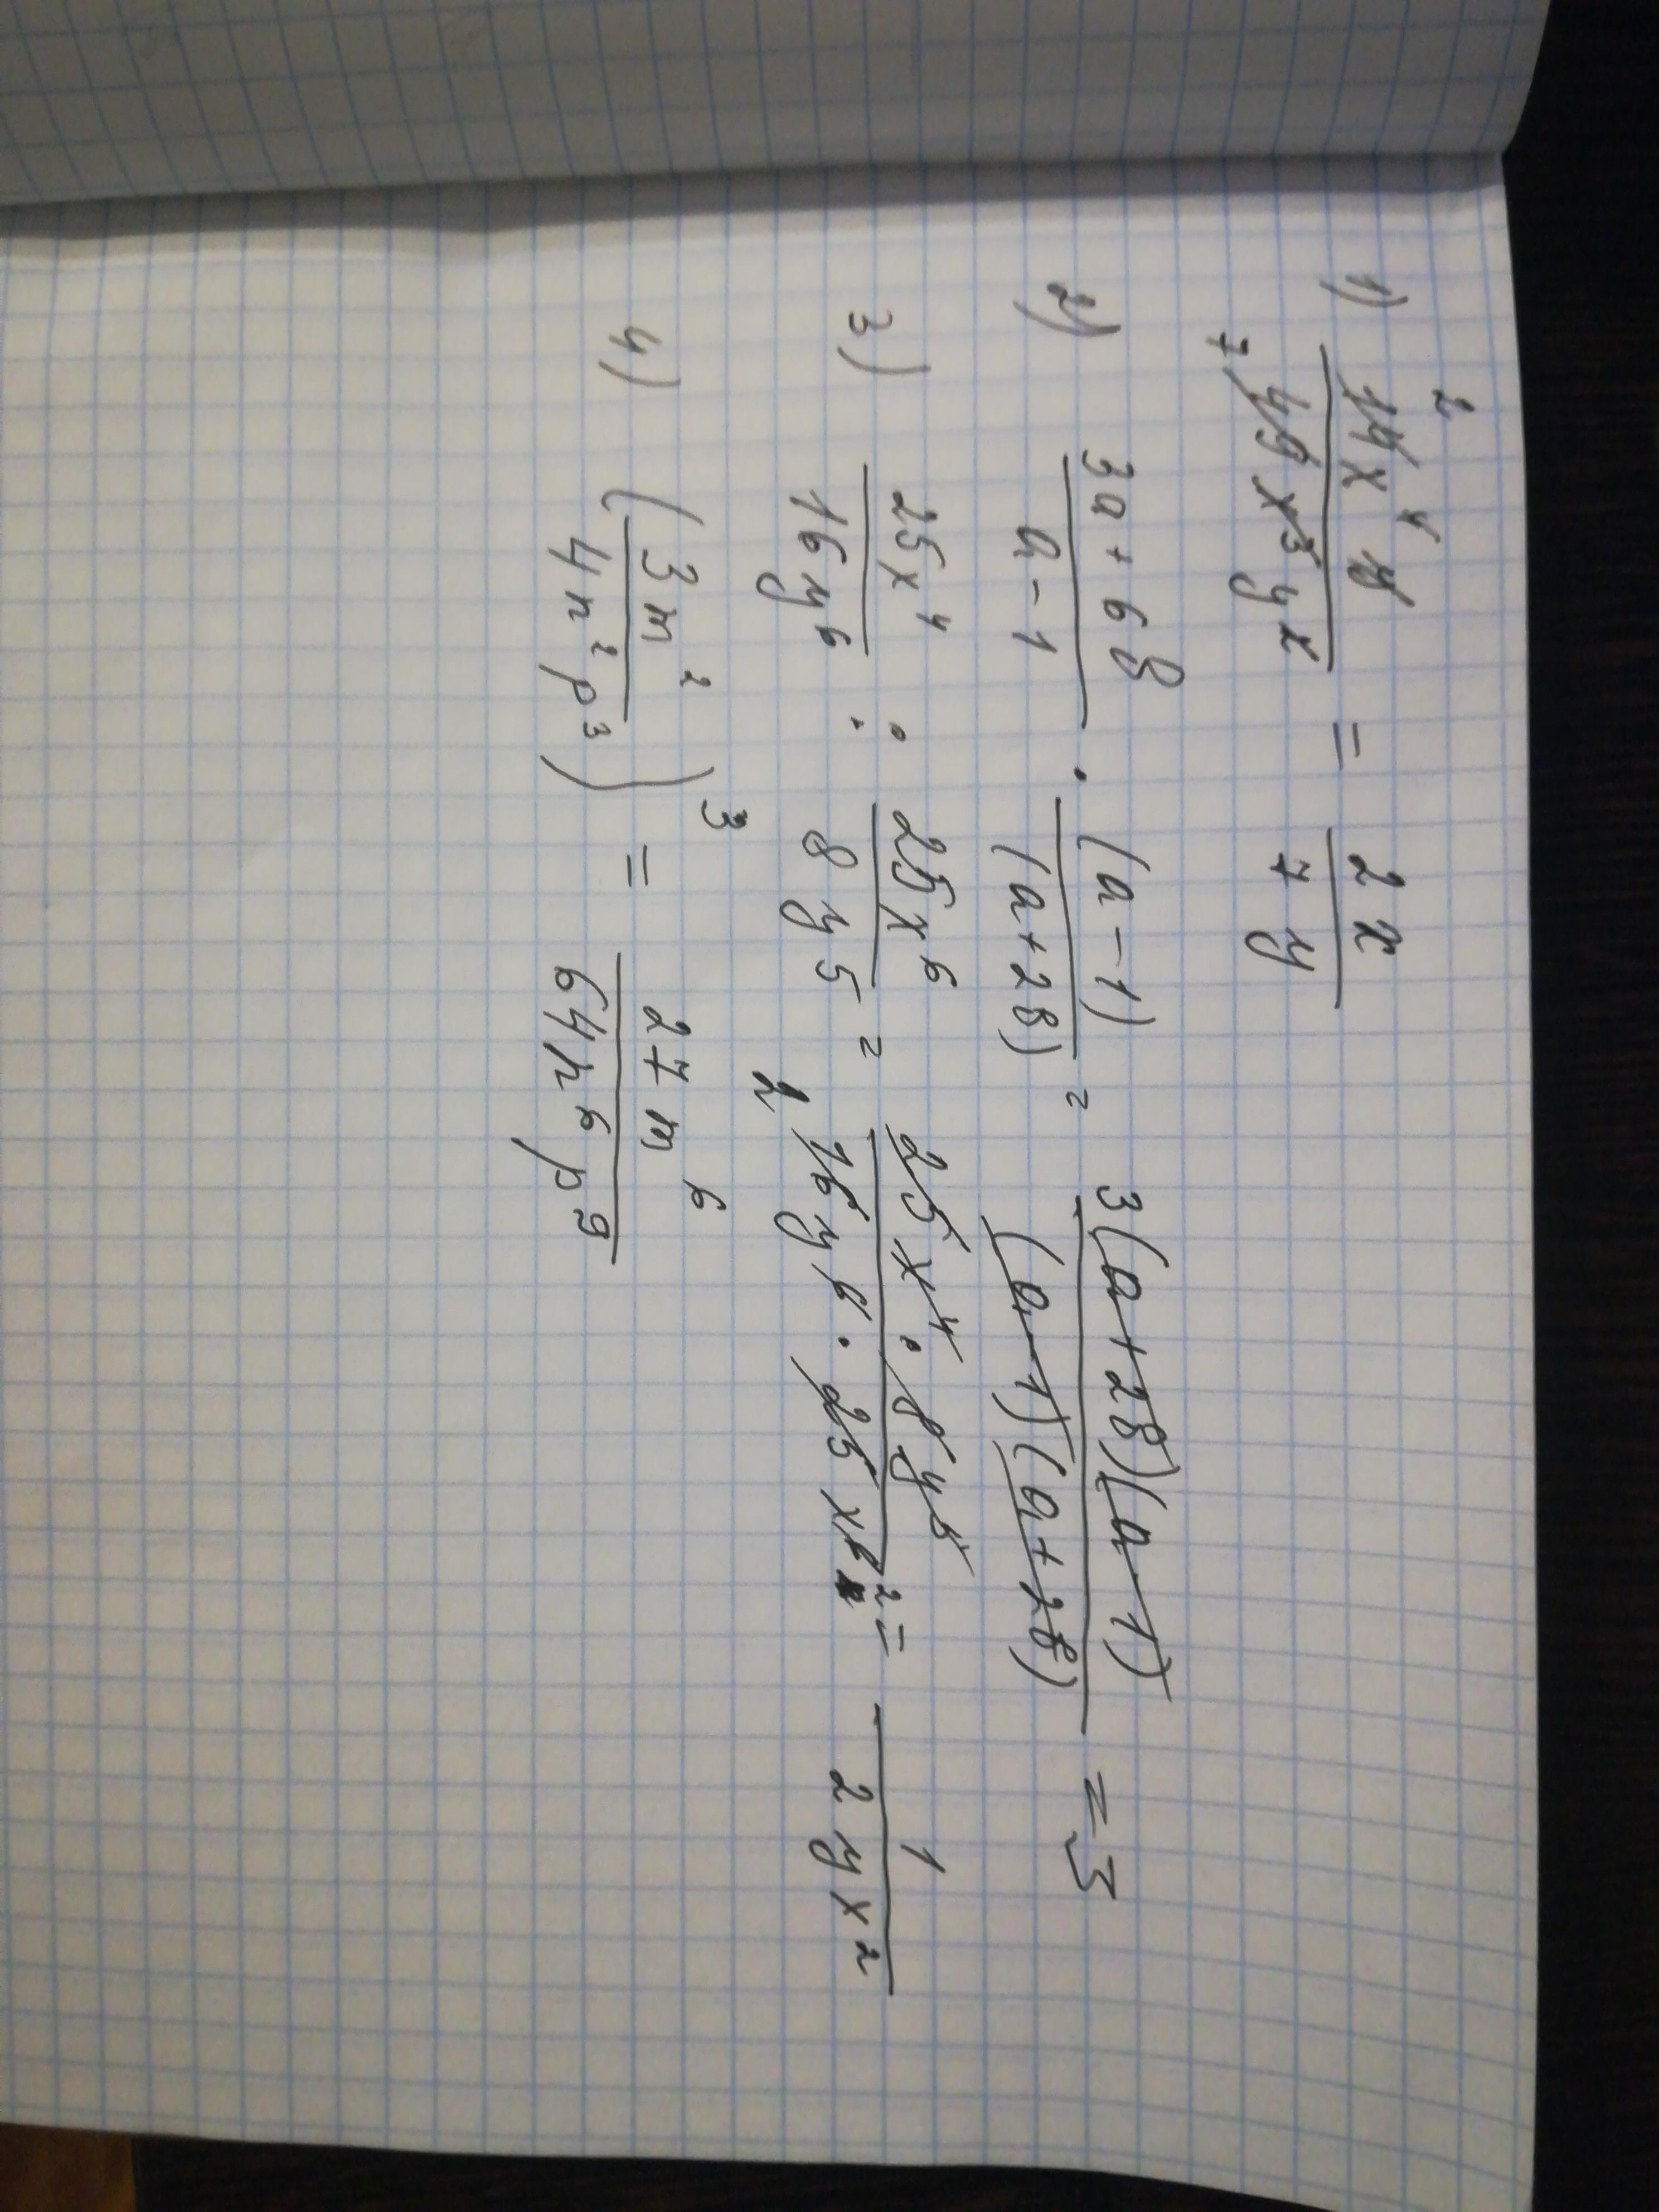 1) 14x⁴y / 49x³y² = 2x / 7y
2) 3a+6b / a-1 · (a-1) / (a+2b) = 3(a+2b)(a-1) / (a-1)(a+2b) = 3
3) 25x⁴ / 16y⁶ : 25x⁶ / 8y⁵ = 25x⁴ · 8y⁵ / 16y⁶ · 25x⁶ = 1 / 2yx²
4) (3m² / 4n²p³)³ = 27m⁶ / 64n⁶p⁹